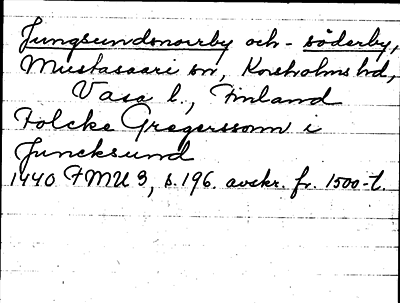 Jungsundsnorrby och -söderby,
Mustasaari sn, Korsholms hd,
Vasa l., Finland
Folcke Gregerssonn i
Juncksund
1440 FMU 3, s. 196. avskr. fr. 1500-t.